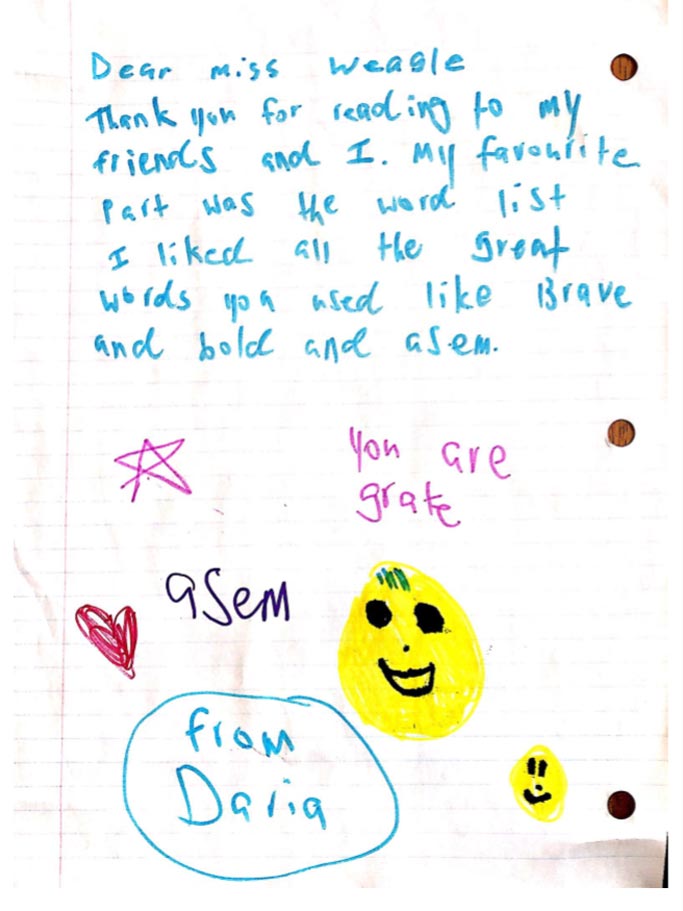 Dear miss Weagle
Thank you for reading to my
friends and I. My favourite
part was the word list
I liked all the great
words you used like Brave
and bold and asem.
You are
grate
asem
from
Daria